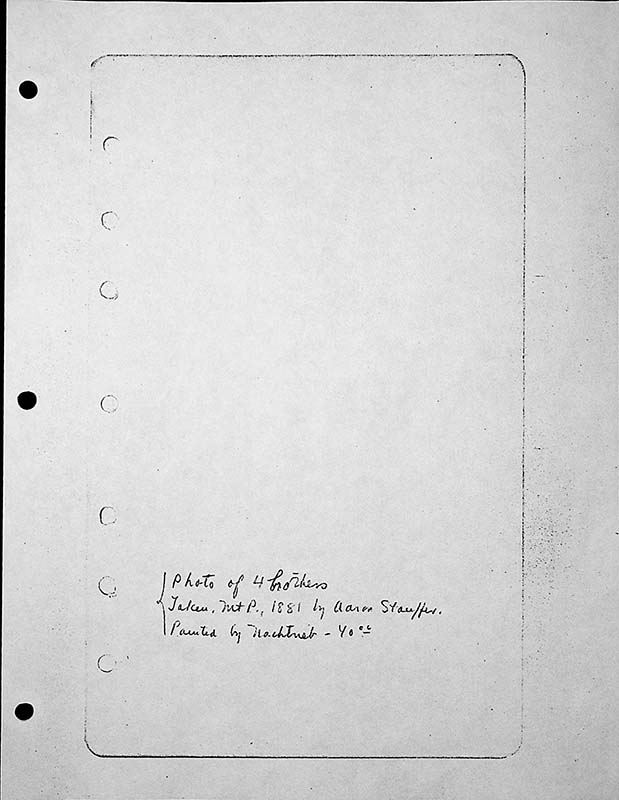 Photo of 4 brothers
Taken, Mt P., 1881 by Aaron Stauffer.
Painted by Nachtrieb - 40 00